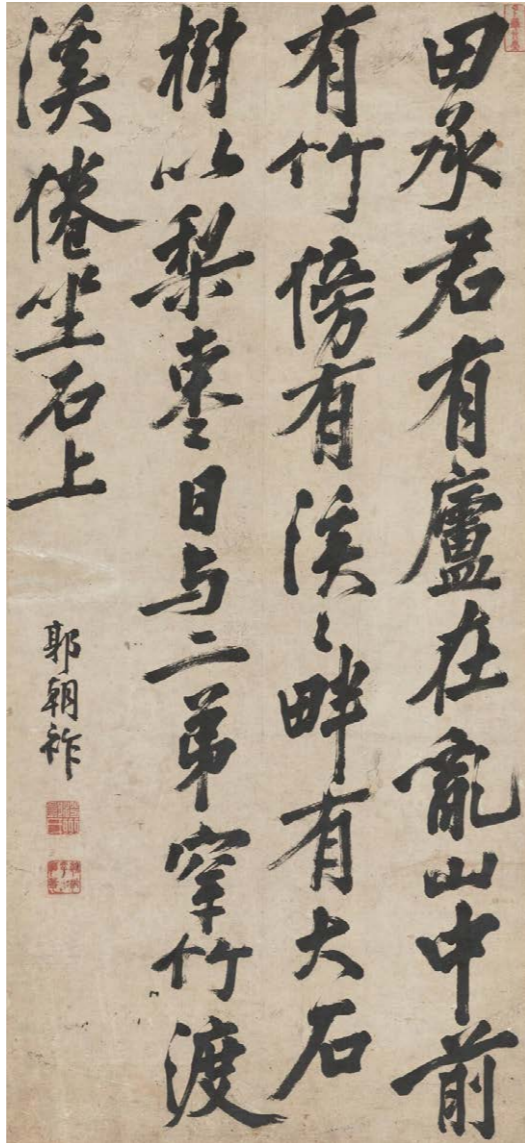 田承君有廬在亂山中前
有竹傍有溪〻畔有大石
樹以梨棗日与二弟穿竹渡
溪倦坐石上
郭朝祚